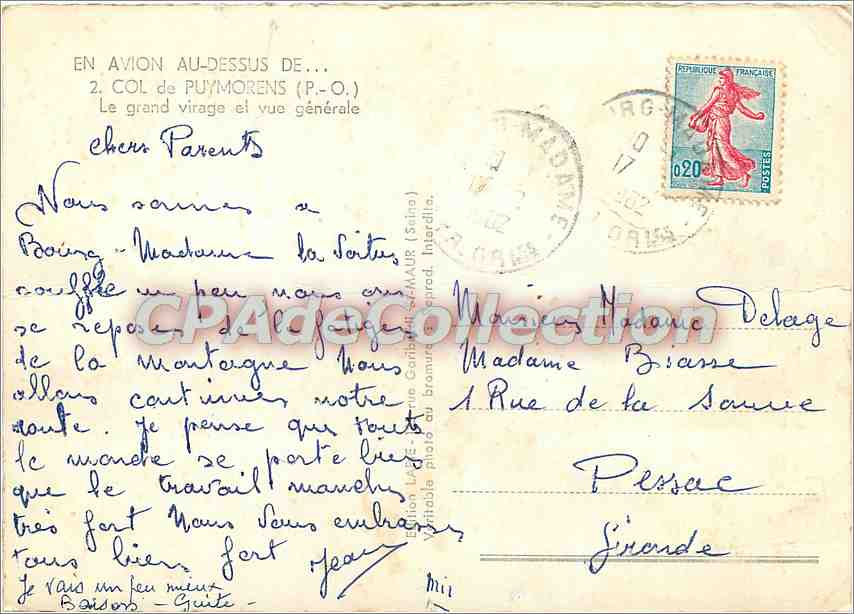 EN AVION AU-DESSUS DE...
2. COL de PUYMORENS (P.-O.)
Le grand virage et vue générale
chers Parents
Nous sommes a
Bourg-Madame la voiture
souffle un peu nous on
se repose de la fatigue
de la montagne Nous
allons continuer notre
route. Je pense que tout
le monde se porte bien
que le travail marche
très fort Nous vous embrassons
tous bien fort Jean
Je vais un peu mieux
Baisers - Guite -
Edition LAPIE - rue Garibaldi St-MAUR (Seine)
Véritable photo au bromure - Reprod. Interdite.
BOURG-MADAME
17
BOURG-MADAME
17
REPUBLIQUE FRANÇAISE
0,20
POSTES
Monsieur Madame Delage
Madame Biasse
1 Rue de la Saune
Pessac
Gironde
CPAdeCollection